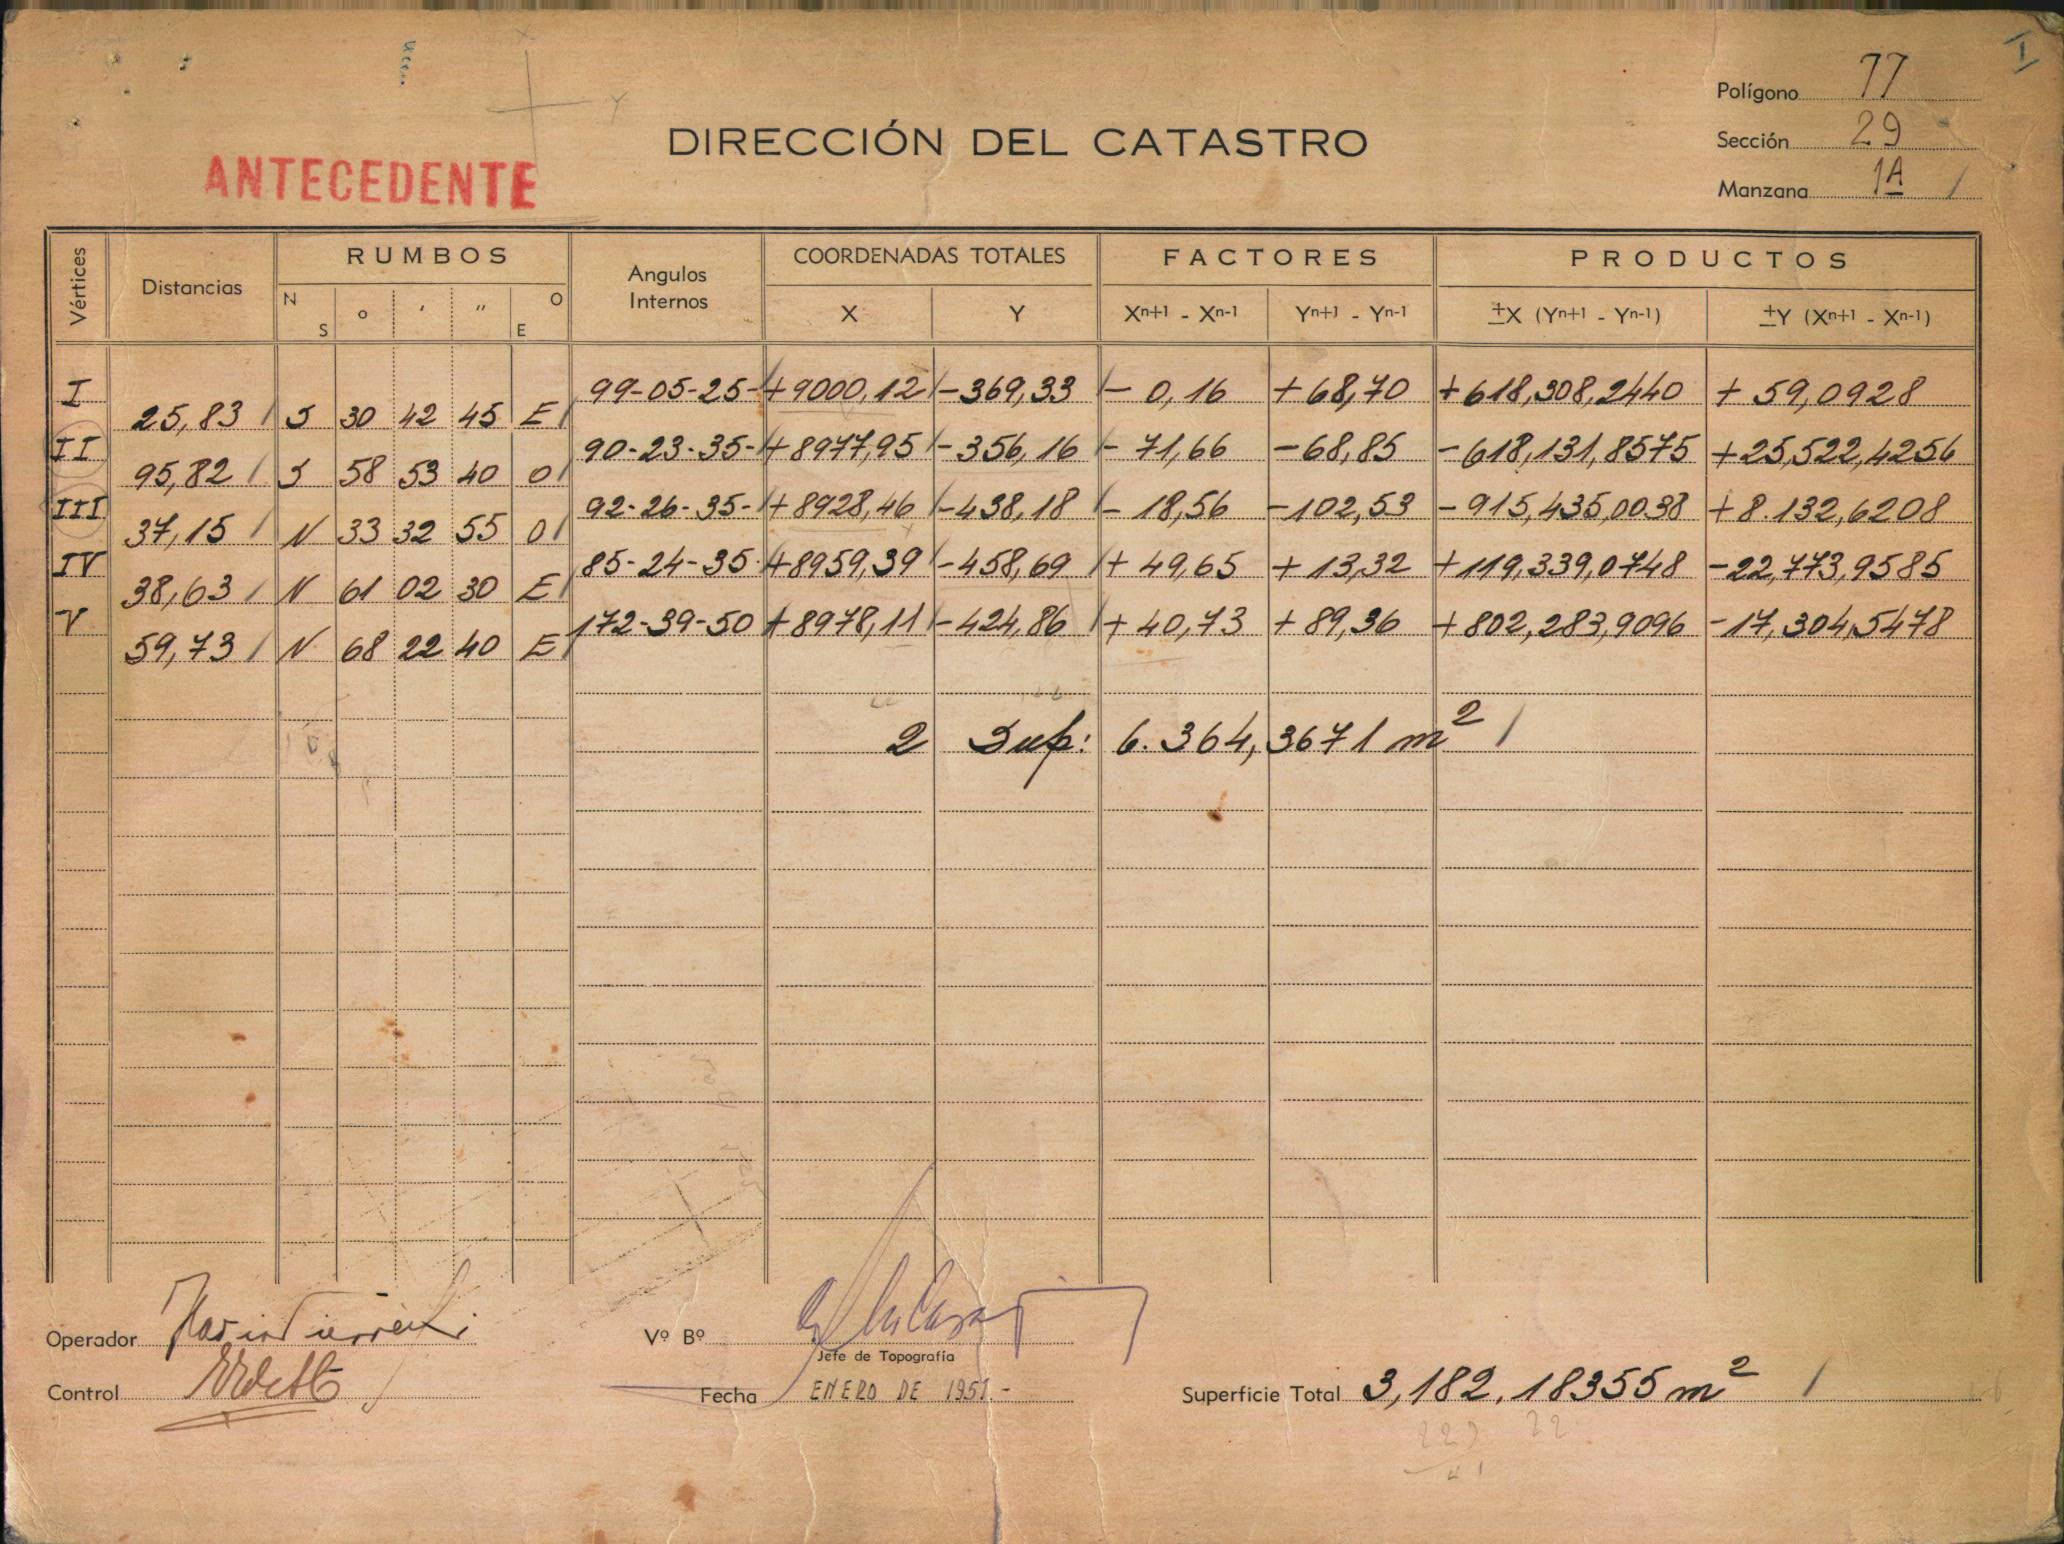 I
Polígono 77
DIRECCIÓN DEL CATASTRO
Sección 29
ANTECEDENTE
Manzana 1A /
Vértices Distancias RUMBOS Angulos Internos COORDENADAS TOTALES FACTORES PRODUCTOS
N S o ' '' O E X Y Xn+1 - Xn-1 Yn+1 - Yn-1 ±X (Yn+1 - Yn-1) ±Y (Xn+1 - Xn-1)
I 99-05-25- +9000,12 -369,33 - 0,16 +68,70 +618,308,2440 + 59,0928
25,83 S 30 42 45 E
II 90-23-35- +8977,95 -356,16 - 71,66 -68,85 -618,131,8575 +25,522,4256
95,82 S 58 53 40 O
III 92-26-35- +8928,46 -438,18 - 18,56 -102,53 -915,435,0038 +8.132,6208
37,15 N 33 32 55 O
IV 85-24-35- +8959,39 -458,69 + 49,65 +13,32 +119,339,0748 -22,773,9585
38,63 N 61 02 30 E
V 172-39-50 +8978,11 -424,86 + 40,73 +89,36 +802,283,9096 -17,304,5478
59,73 N 68 22 40 E
2 Sup: 6.364,3671 m2 /
Operador
Vº Bº
Jefe de Topografía
Control
Fecha ENERO DE 1951.-
Superficie Total 3,182,18355 m2 /